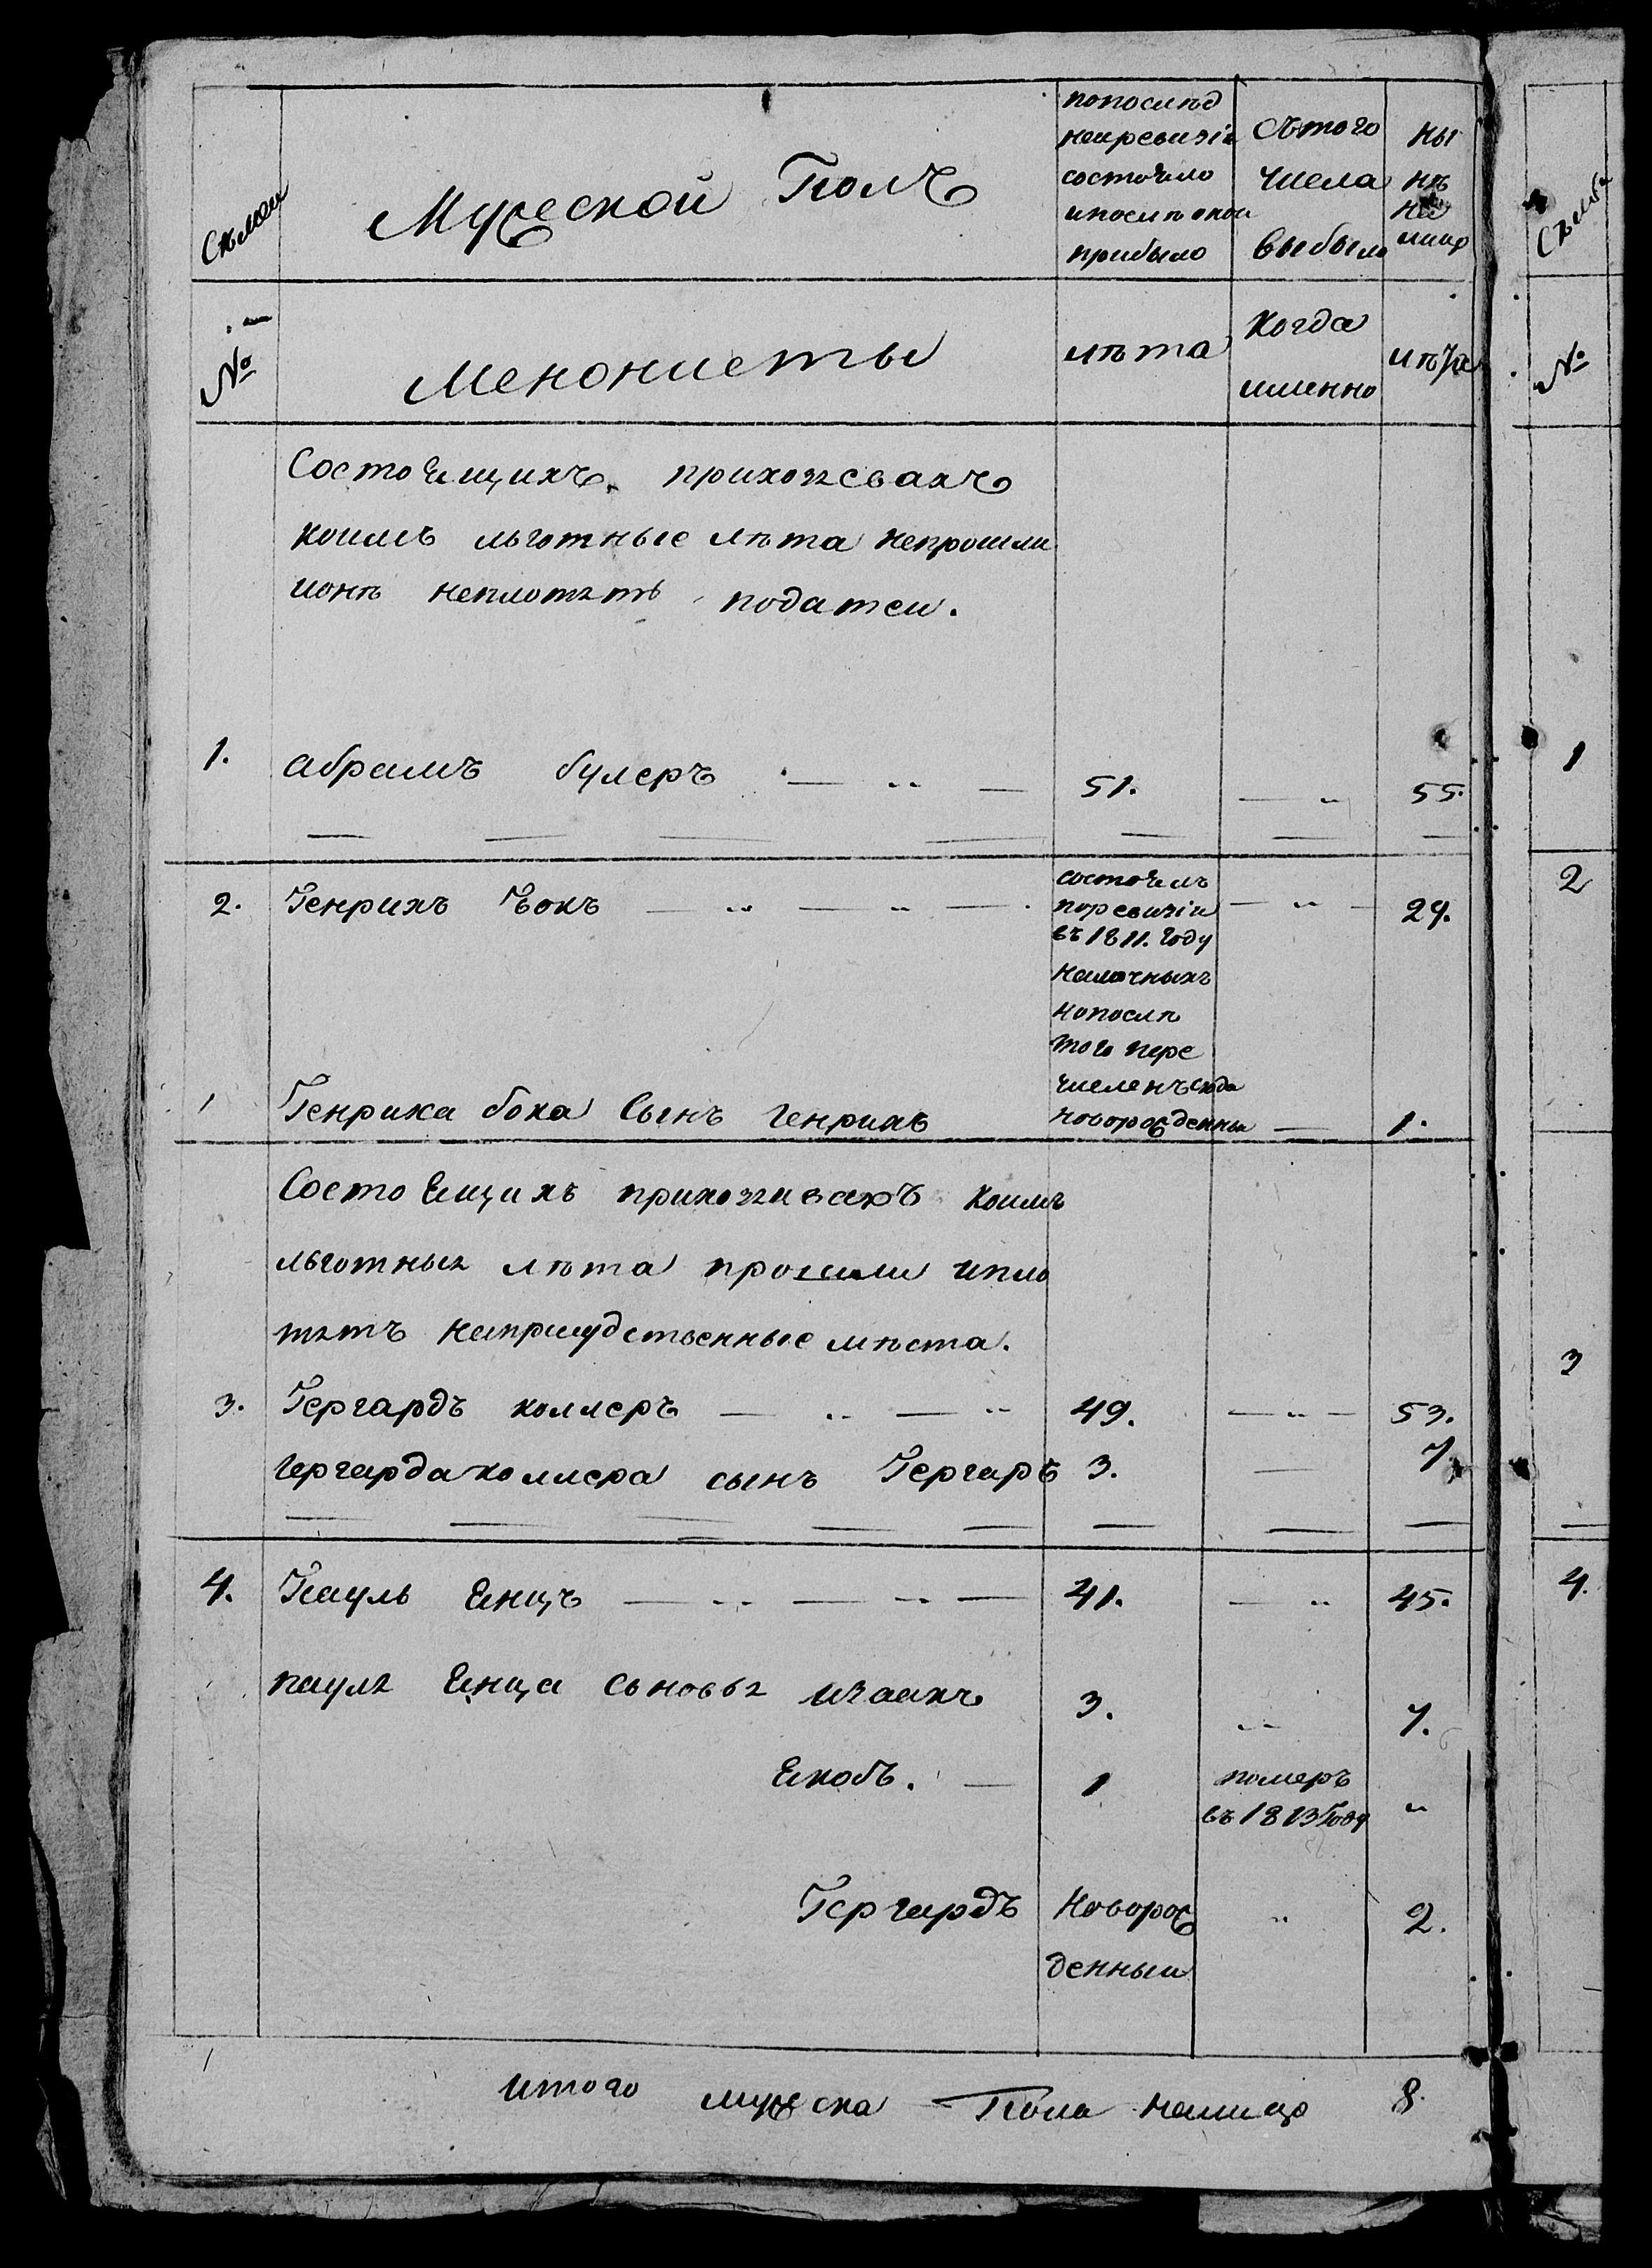 Мужеской Полъ
попослѣд
нейревизіи
состояло
ипослѣ оной
прибыло
Сътого
числа
выбыло
ны
нѣ
на
лицо
№
Менонисты
лѣта
когда
именно
лѣта
№
Состоящихъ прихозяевахъ
коимъ льготные лѣта непрошли
ионѣ неплотятъ податеи.
1. абрамъ булеръ 51. 55.
1
2. Генрихъ Бокъ 29.
состоялъ
поревизіи
въ 1811. году
наличныхъ
нопослѣ
того пере
численъ сюда
2
Генриха бока Сынъ генрихъ новорожденны 1.
Состоящихъ прихозяевахъ коимъ
льготныя лѣта прошли ипло
тятъ
3. Гергардъ коллеръ 49. 53.
3
гергарда коллера сынъ Гергаръ 3. 7
4. Пауль Янцъ 41. 45.
4.
пауля Янца сыновья изаакъ 3. 7.
Якобъ. 1 померъ
въ 1813 году
Гергардъ Новорож
денныи 2.
итого мужеска Пола налицо 8.